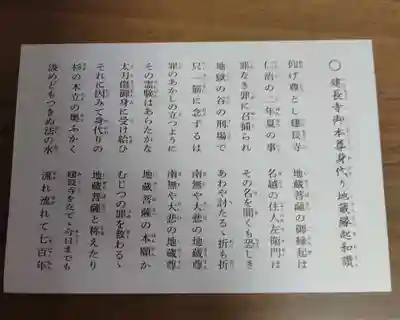 〇 建長寺御本尊身代り地蔵縁起和讃
仰げ尊とし建長寺 地蔵菩薩の御縁起は
仁治の二年夏の事 名越の住人左衛門は
罪なき罪に召捕られ その名を聞くも恐しき
地獄の谷の刑場で あわや討たるゝ折も折
只一筋に念ずるは 南無や大悲の地蔵尊
罪のあかしの立つように 南無や大悲の地蔵尊
その霊験はあらたかな 地蔵菩薩の本願か
太刀傷御身に受け給ひ むじつの罪を救わるゝ
それに因みて身代りの 地蔵菩薩と称えたり
杉の木立の奥ふかく 今日までも
汲めどもつきぬ法の水 流れ流れて七百年